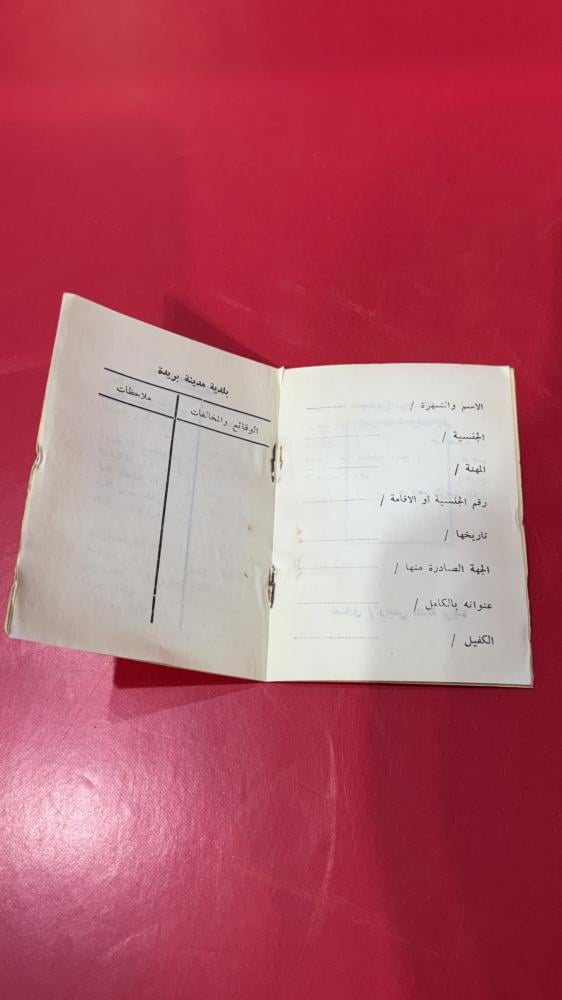 الاسم والشهرة /
الجنسية /
المهنة /
رقم الجنسية أو الاقامة /
تاريخها /
الجهة الصادرة منها /
عنوانه بالكامل /
الكفيل /
بلدية مدينة بريدة
الوقائع والمخالفات
ملاحظات